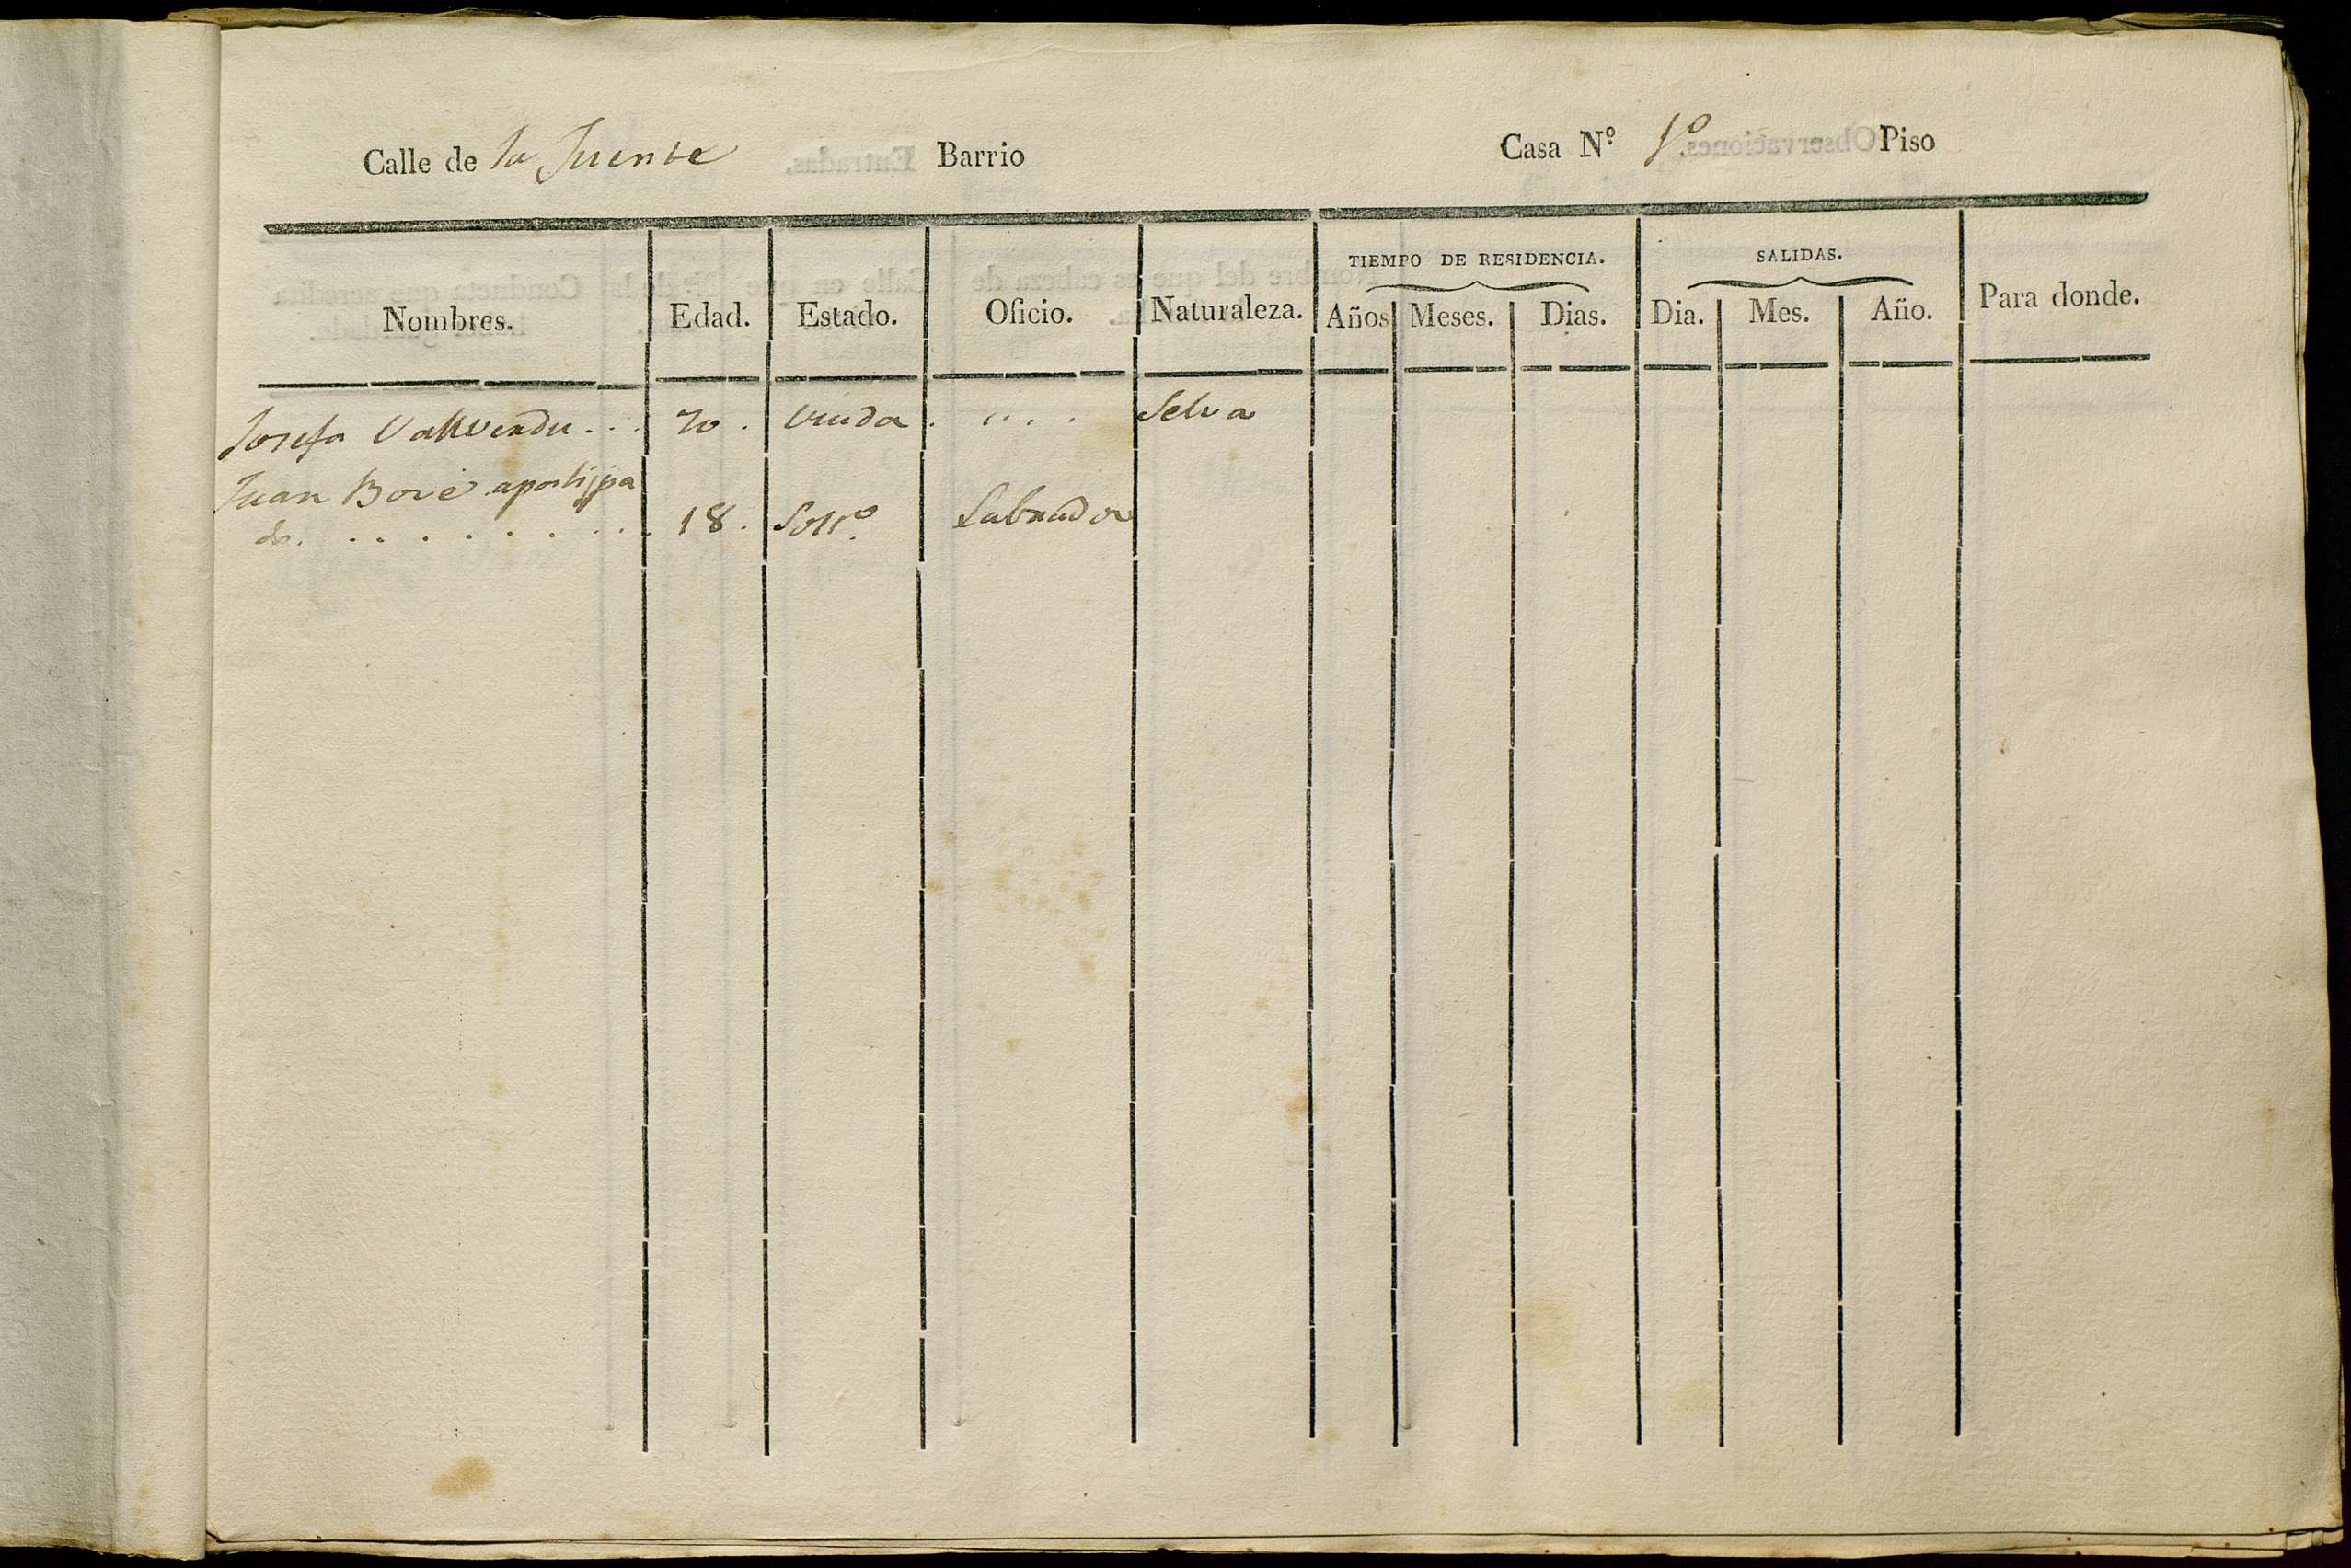 Calle de la Fuente Barrio Casa N.º 1º Piso
TIEMPO DE RESIDENCIA. SALIDAS.
Nombres. Edad. Estado. Oficio. Naturaleza. Años Meses. Dias. Dia. Mes. Año. Para donde.
Josefa 70. Viuda. .... Selva
Juan Bové
18. Solt.º Labrador